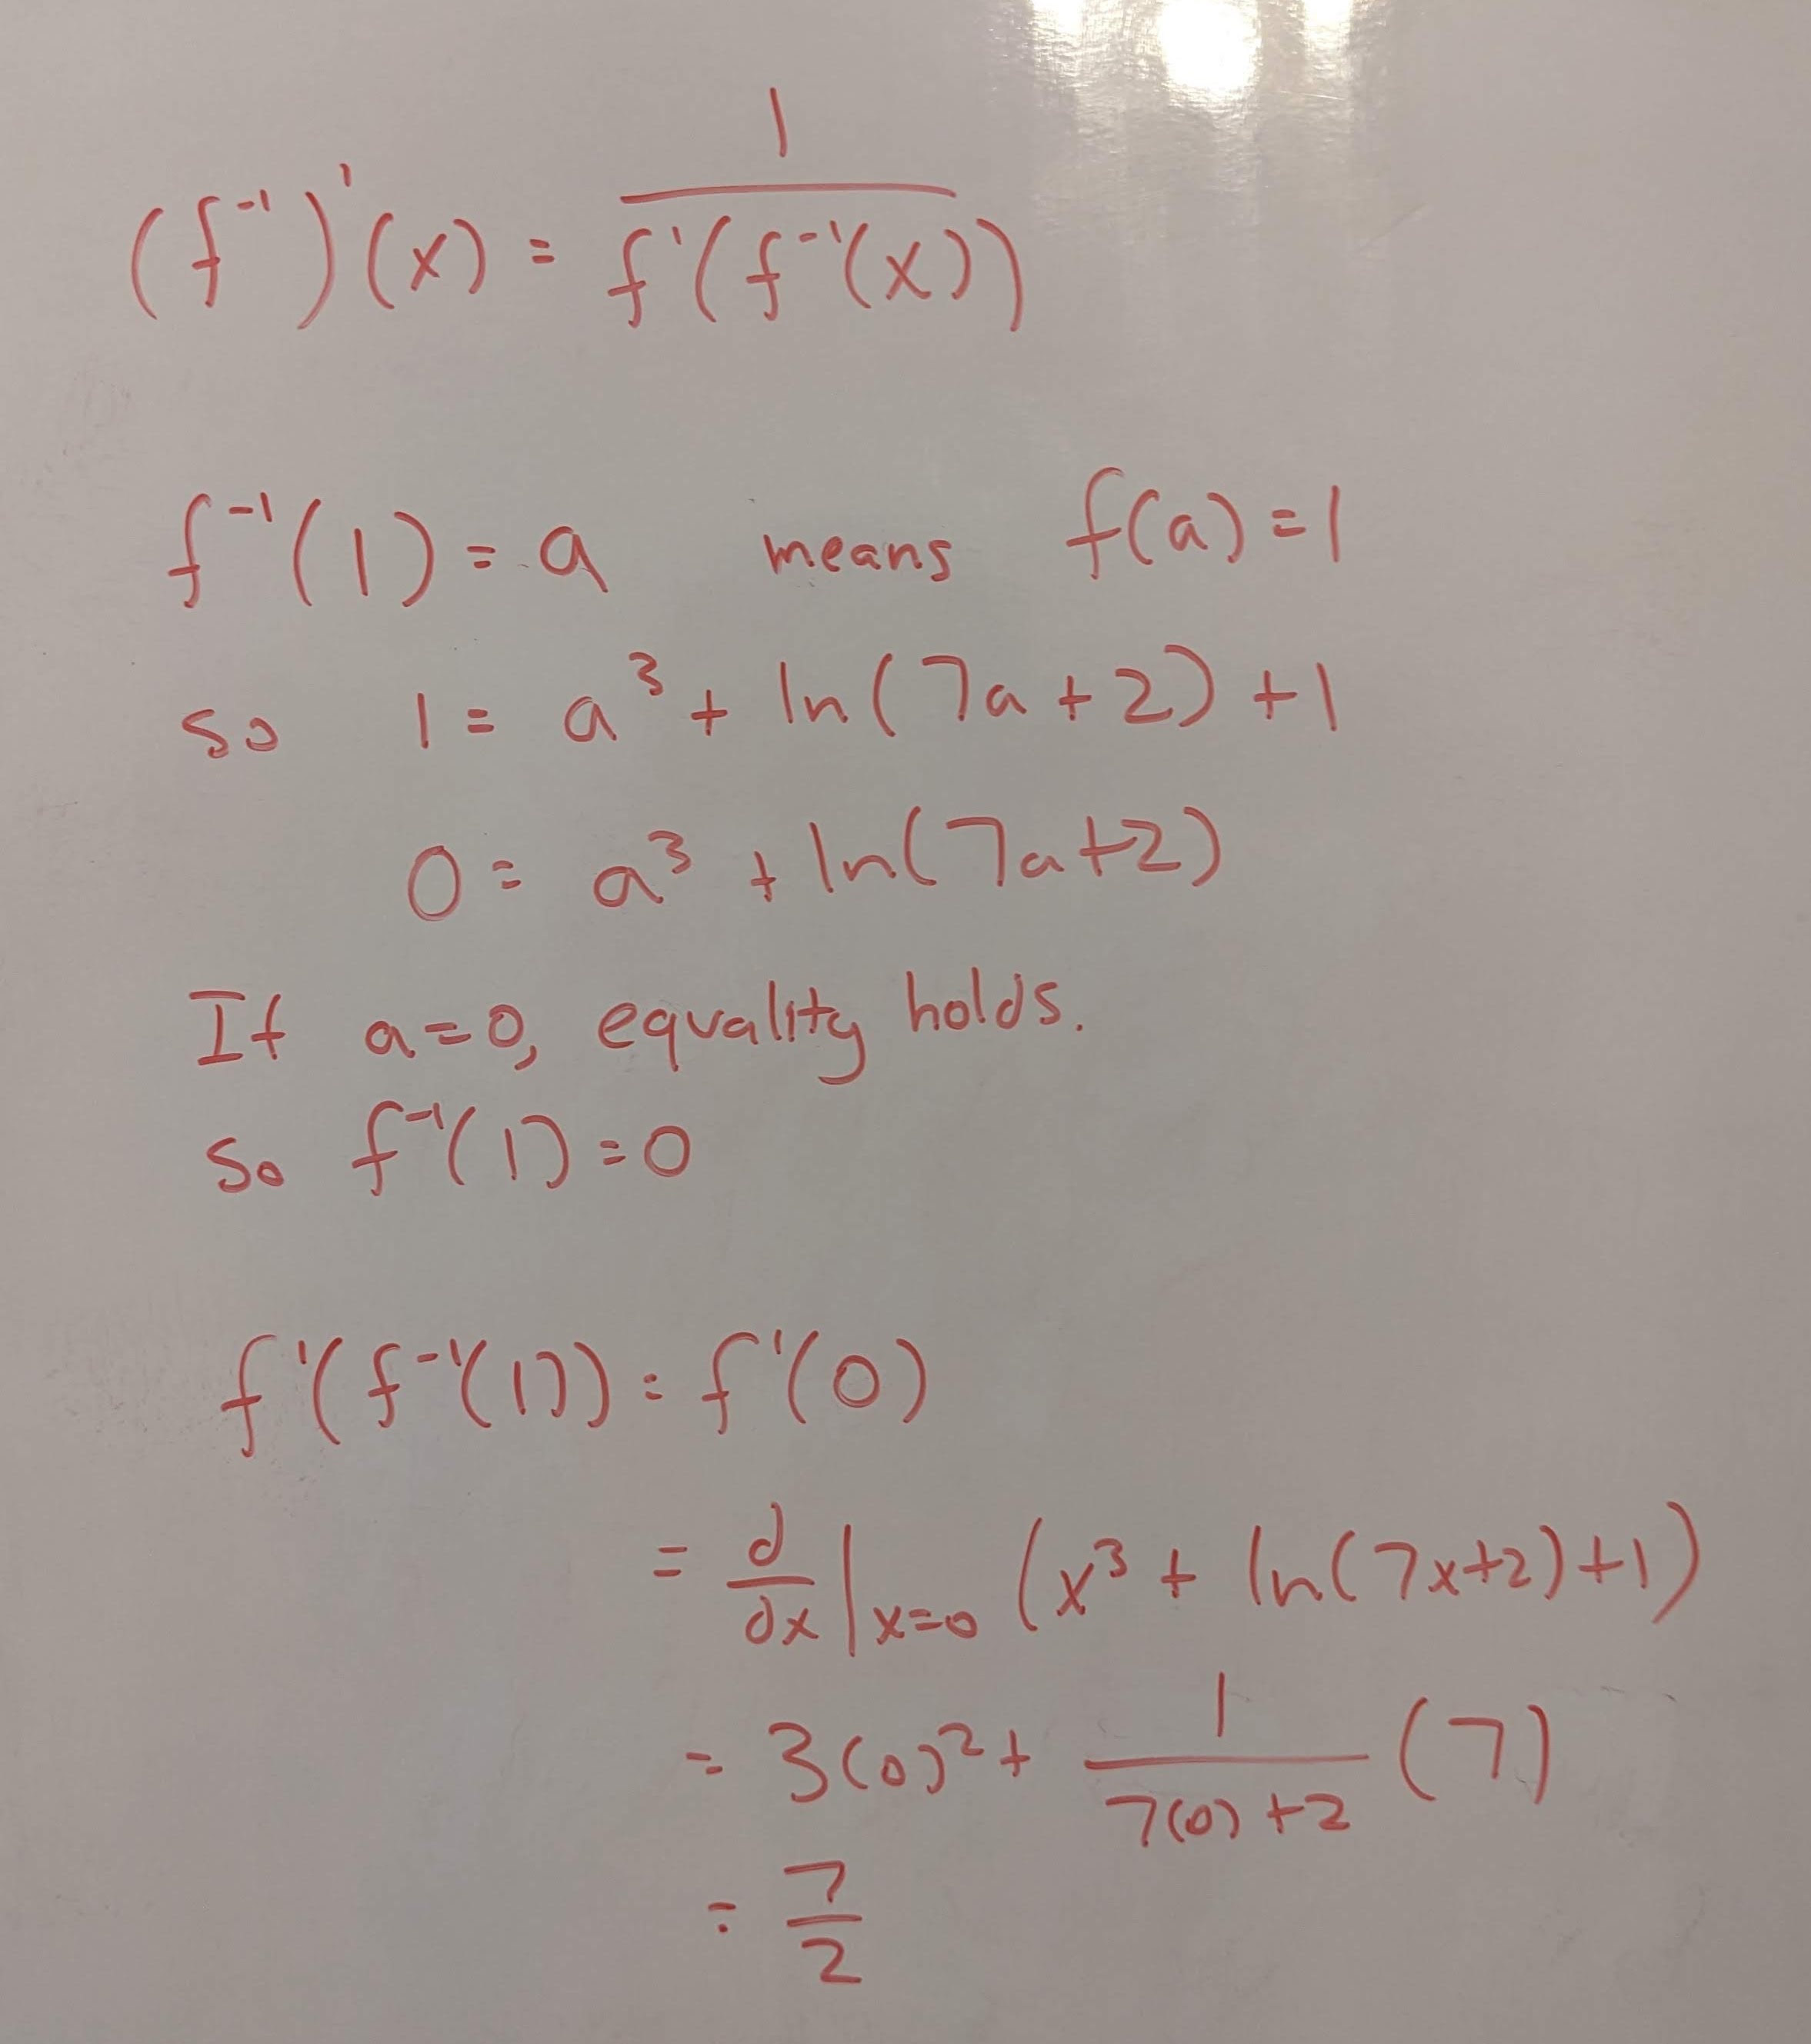 (f⁻¹)'(x) = 1 / f'(f⁻¹(x))
f⁻¹(1) = a means f(a) = 1
so 1 = a³ + ln(7a + 2) + 1
0 = a³ + ln(7a+2)
If a=0, equality holds.
So f⁻¹(1) = 0
f'(f⁻¹(1)) = f'(0)
= d/dx |x=0 (x³ + ln(7x+2)+1)
= 3(0)² + 1 / 7(0)+2 (7)
= 7/2